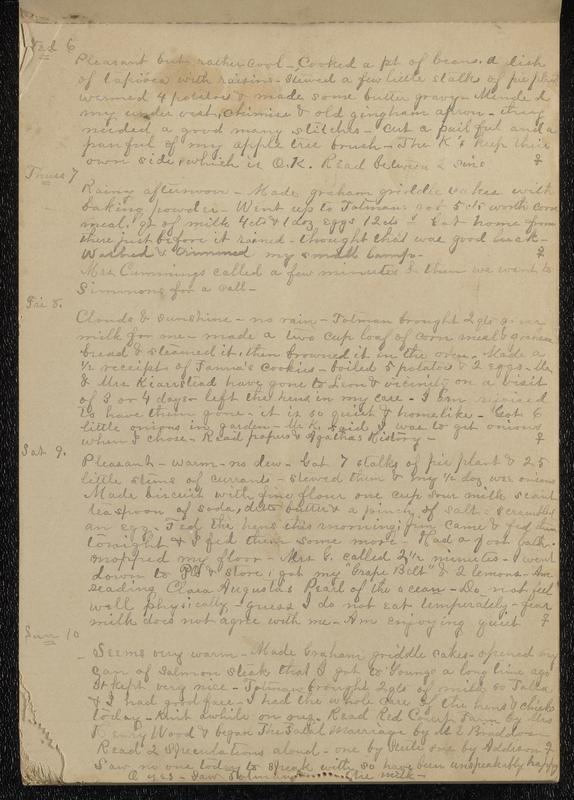 Wed 6
Pleasant but rather cool - Cooked a pt of beans, a dish
of tapioca with raisins - stewed a few little stalks of pie plant
warmed 4 potatoes & made some butter gravy - Mended
my under vest, chimise & old gingham apron - they
needed a good many stitches - Cut a pail full and a
pan full of my apple tree brush - The K's keep their
own side, which is O.K. Read between
Thurs 7
Rainy afternoon - Made graham griddle cakes with
baking powder - Went up to Tolmans got 5 cts worth corn
meal, qt of milk 4 cts & 1 doz eggs 12 cts - Got home from
there just before it rained - thought that was good luck -
Washed & trimmed my small lamps -
Mrs Cummings called a few minutes & then we went to
Simmons for a call -
Fri 8.
Clouds & sunshine - no rain - Tolman brought 2 qts
milk for me - made a two cup loaf of corn meal & graham
bread & steamed it, then browned it in the oven. Made a
1/2 receipt of Fanna's cookies - boiled 5 potatoes & 2 eggs - Mr
& Mrs Kiarstead have gone to Leon & vicinity on a visit
of 3 or 4 days - left the hens in my care - I am rejoiced
to have them gone - it is so quiet & homelike - Got 6
little onions in garden - Mr K. said I was to get onions
when I chose - Read papers & Agathas History -
Sat 9.
Pleasant - warm - no dew - Got 7 stalks of pie plant & 25
little stems of currants - stewed them & my 1/2 doz wee onions
Made biscuit with fine flour one cup sour milk scant
teaspoon of soda, ditto butter & a pinch of salt - scrambled
an egg - Fed the hens this morning; Jim came & fed them
tonight & I fed them some more - Had a good bath -
mopped my floor - Mrs G. called 2 1/2 minutes - I went
down to P.O & store; got my "Grape Belt" & 2 lemons - Am
reading Clara Augustas Pearl of the ocean - Do not feel
well physically - guess I do not eat temperately - fear
milk does not agree with me - Am enjoying quiet
Sun 10
Seems very warm - Made Graham griddle cakes - opened my
can of Salmon steak that I got to Youngs a long time ago
It kept very nice - Tolman brought 2 qts of milk so Talla
& I had good fare - I had the whole care of the hens & chicks
today - Knit awhile on rug. Read Red Court Farm by Mrs
Henry Wood & began The Fatal Marriage by M E Braddon -
Read 2 Speculations aloud - one by Steele one by Addison
Saw no one today to speak with, so have been unspeakably happy
O yes - saw Tolman the milk -